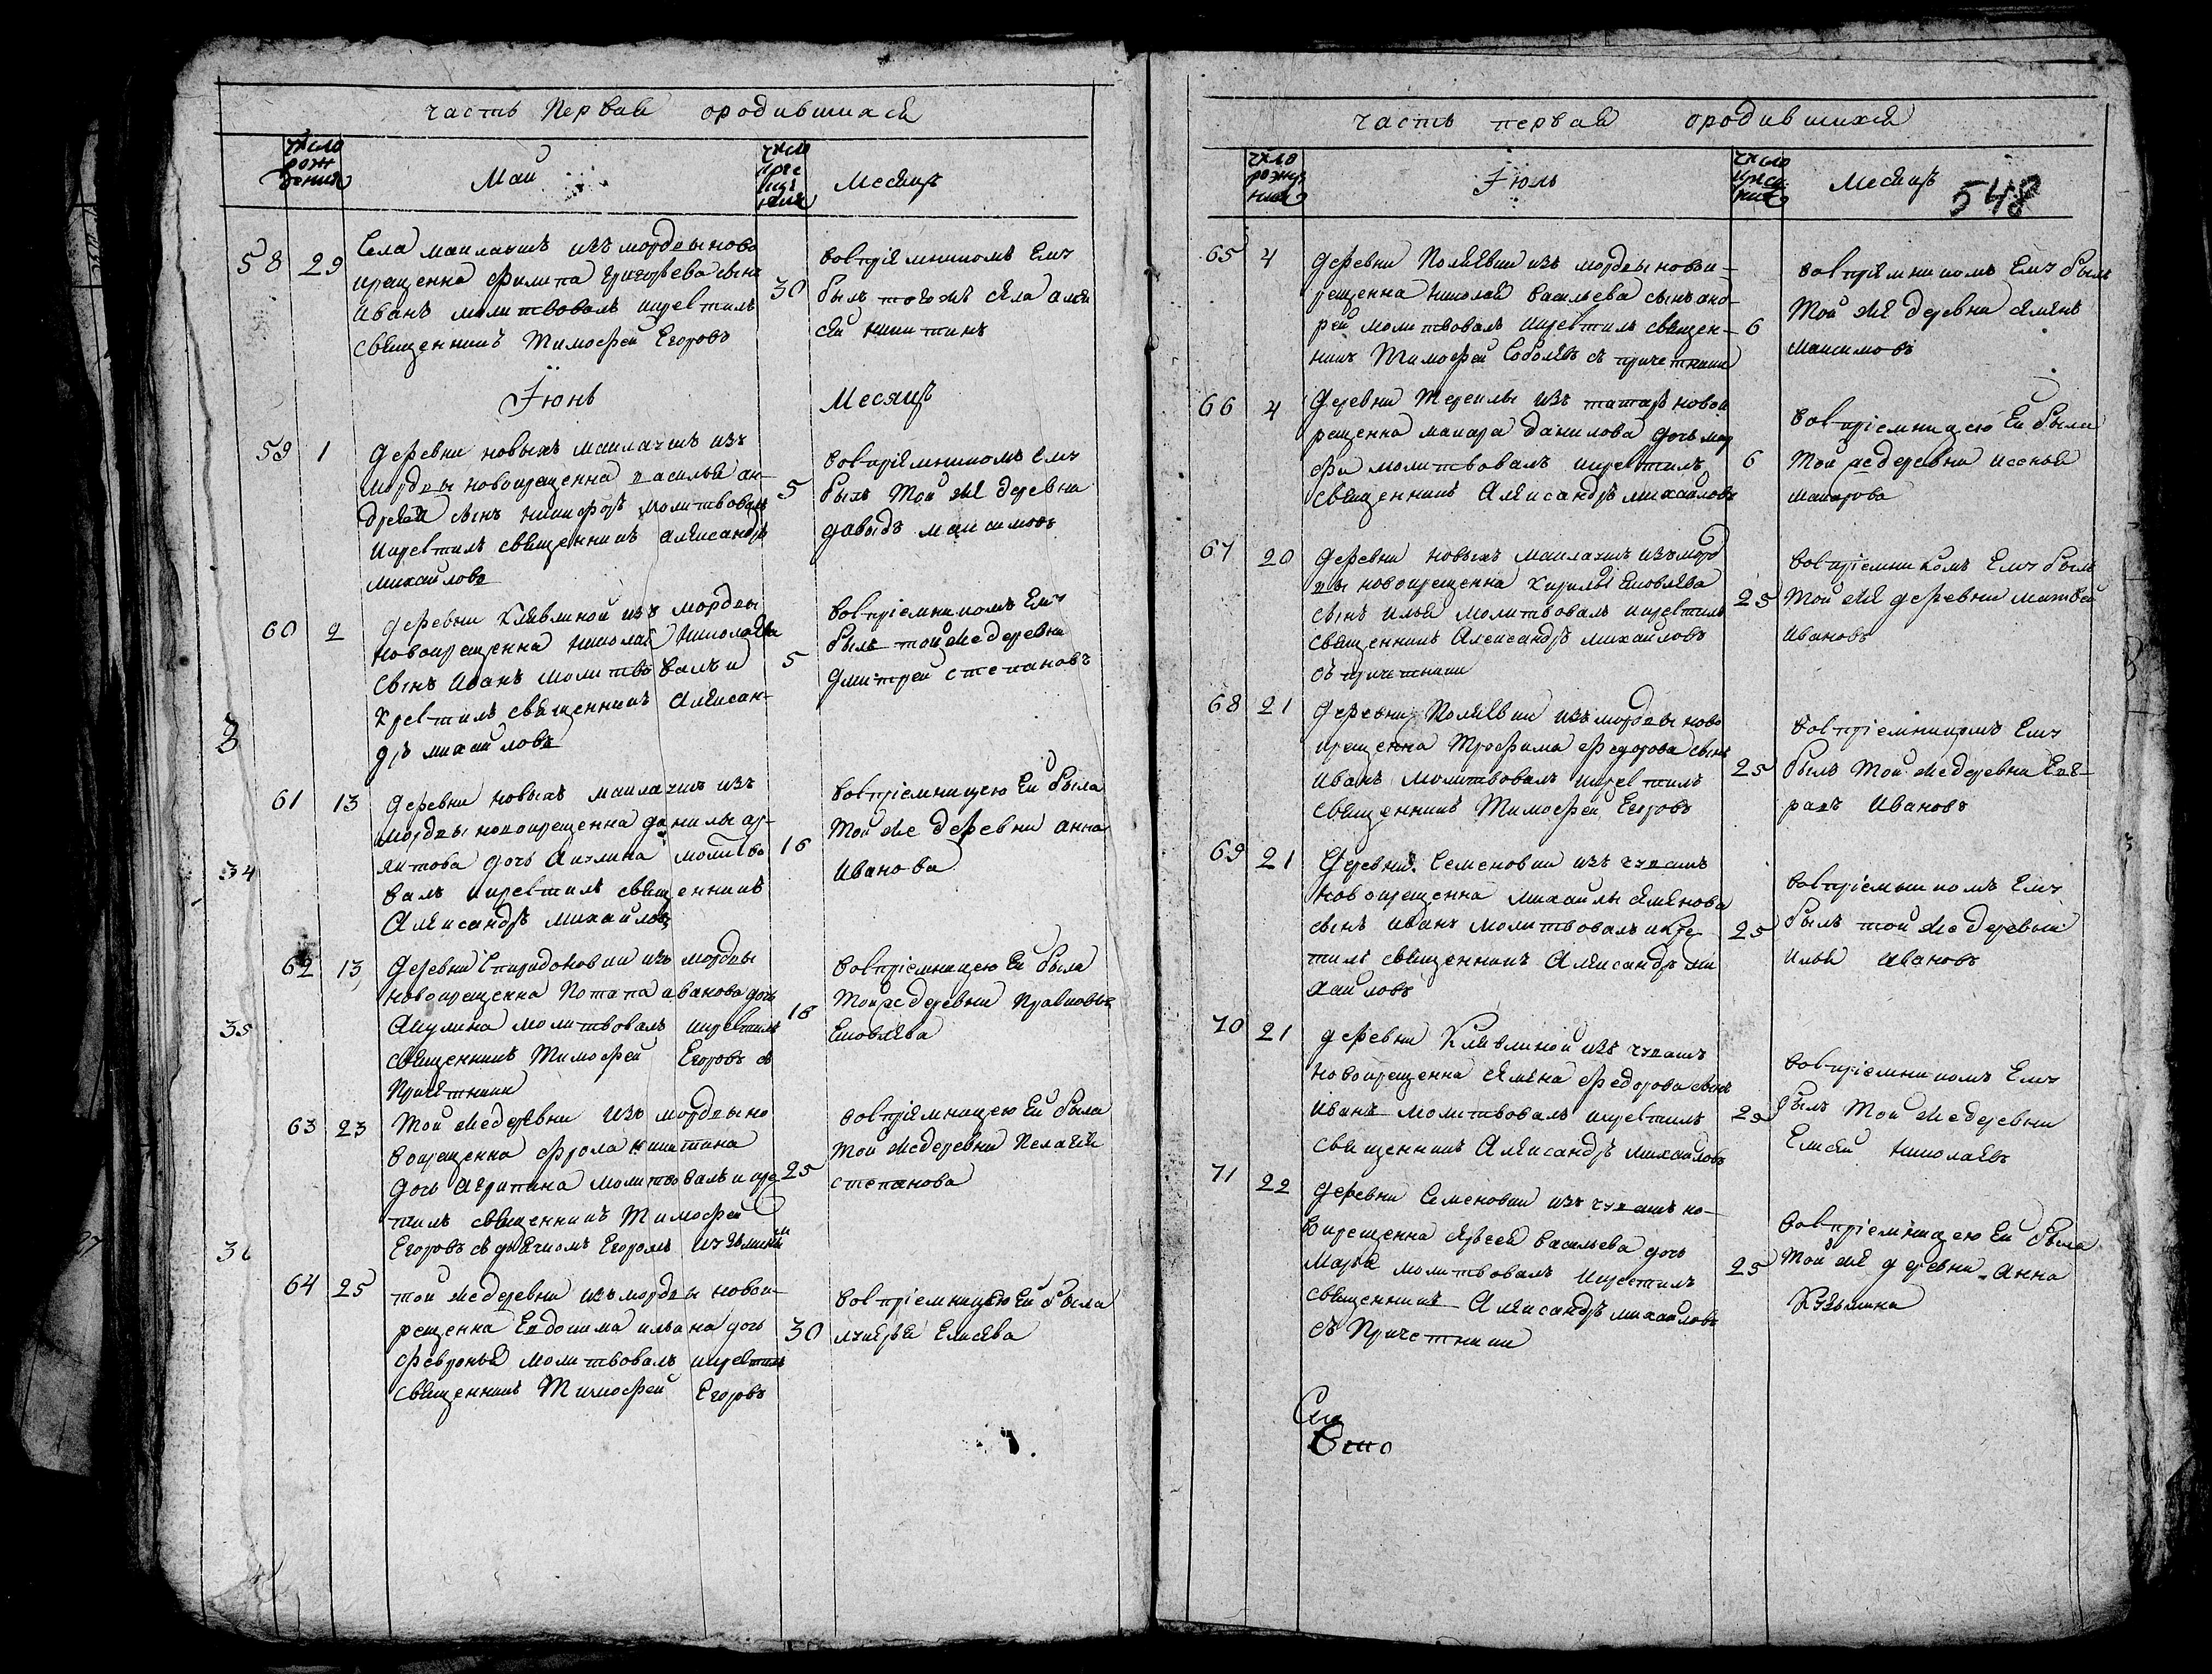 часть первая о родившихся
число рож дения
Маи
число креще ния
Месяцъ
58 29 Села маклаушъ изъ мордвы ново
крещенна филипа григорьева сынъ
иванъ молитвовалъ икрестилъ
священникъ Тимофей Егоровъ
30
восприемникомъ Ему
былъ тогожъ села алек
сей никитинъ
Іюнь Месяцъ
59 1 деревни новыхъ маклаушъ изъ
мордвы новокрещенна василья ан-
дреева сынъ никифоръ молитвовалъ
икрестилъ священникъ александръ
михаиловъ
5
восприемникомъ ему
былъ Той же деревни
давыдъ максимовъ
60 2 деревни Клявлиной изъ мордвы
новокрещенна николая николаева
сынъ иванъ молитвовалъ и
крестилъ священникъ алексан-
дръ михаиловъ
5
восприемникомъ Ему
былъ тойже деревни
дмитреи степановъ
3
61 13 деревни новыхъ маклаушъ изъ
мордвы новокрещенна данилы ар-
дочь акулина молитво
валъ икрестилъ священникъ
Александръ михаиловъ
16
восприемницею Ей была
Тойже деревни анна
иванова
34
62 13 деревни Спиридоновки изъ мордвы
новокрещенна Потапа иванова дочь
акулина молитвовалъ икрестилъ
священникъ Тимофей Егоровъ съ
Причетники
16
восприемницею Ей была
Тойже деревни Прасковья
Яковлева
35
63 23 Той жедеревни изъ мордвы но
вокрещенна фрола никитина
дочь агрипина молитвовалъ и кре
тилъ священникъ Тимофей
Егоровъ съ дьячкомъ Егоромъ
25
восприемницею Ей была
Той жедеревни Пелагея
степанова
36
64 25 той жедеревни изъ мордвы новок-
рещенна Евдокима дочь
февронья молитвовалъ икрестилъ
священникъ Тимофей Егоровъ
30
восприемницею Ей была
лукерья Елисева
часть первая о родившихся
число рожде ния
Іюль
число креще ния
Месяцъ 548
65 4 деревни Поляевки изъ мордвы новок-
рещенна николая васильева сынъ анд-
рей молитвовалъ икрестилъ священ-
никъ Тимофей Соболевъ съ причетники
6
восприемникомъ Ему былъ
Той же деревни семенъ
максимовъ
66 4 деревни изъ татаръ новок
рещенна макара данилова дочь мар
фа молитвовалъ икрестилъ
священникъ Александръ михаиловъ
6
восприемницею Ей была
Тойже деревни ксенья
макарова
67 20 деревни новыхъ маклаушъ изъ морд
вы новокрещенна Кирилы яковлева
сынъ илья молитвовалъ икрестилъ
священникъ Александръ михаиловъ
съ причетники
25
восприемникомъ Ему былъ
Той же деревни матвей
ивановъ
68 21 деревни Поляевки изъ мордвы ново
крещенна Трофима федорова сынъ
иванъ молитвовалъ икрестилъ
священникъ Тимофей Егоровъ
25
восприемникомъ Ему
былъ Той жедеревни
ивановъ
69 21 деревни Семеновки изъ чувашъ
новокрещенна михаилы семенова
сынъ иванъ молитвовалъ икре
тилъ священникъ Александръ ми
хаиловъ
25
восприемникомъ Ему
былъ той жедеревни
илья ивановъ
70 21 деревни Клявлиной изъ чувашъ
новокрещенна семена федорова сынъ
иванъ молитвовалъ икрестилъ
священникъ Александръ михаиловъ
25
восприемникомъ Ему
былъ Той жедеревни
Елисей николаевъ
71 22 деревни Семеновки изъ чувашъ но-
вокрещенна васильева дочь
марья молитвовалъ икрестилъ
священникъ Александръ михаиловъ
съ Причетники
25
восприемницею Ей была
Той же деревни Анна
Кузьмина